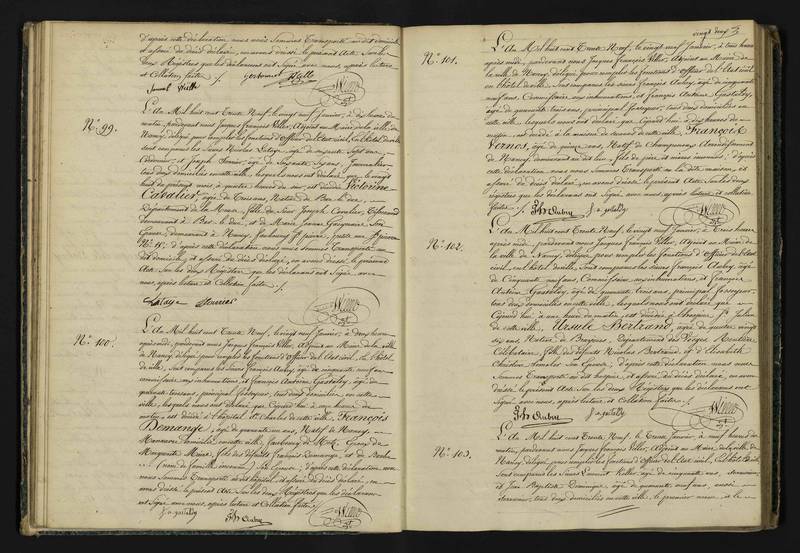 D'après cette déclaration nous nous sommes transporté au dit domicile
et assuré du décès déclaré, en avons dressé le présent Acte sur les
deux Registres que les déclarants ont signé avec nous, après lecture
et Collation faite ./.
N.º 99.
L'An Mil huit cent Trente Neuf, le vingt neuf Janvier, à
matin, pardevant nous Jacques François Adjoint au Maire de la ville de
Nancy, délégué pour remplir les fonctions d'Officier de l'Etat civil, en l'hôtel de ville
sont comparus les Sieurs Nicolas âgé de
et Joseph âgé de Soixante Journalier
tous deux domiciliés en cette ville, lesquels nous ont déclaré que le vingt
huit du présent mois, à quatre heures du soir, est décédée Victorine
Cavalier, âgée de Trois ans, Native de Bar-le-duc,
Département de la Meuse, fille de Sieur Joseph Cavalier,
demeurant à Bar-le-duc, et de Marie Jeanne Son
Epouse, demeurant à Nancy, faubourg St. Pierre,
N.º 15; d'après cette déclaration nous nous sommes Transporté au
dit domicile, et assuré du décès déclaré, en avons dressé le présent
Acte sur les deux Registres que les déclarants ont signé avec
nous, après lecture et Collation faite ./.
N.º 100.
L'An Mil huit cent Trente Neuf, le vingt neuf Janvier, à deux heures
après midi, pardevant nous Jacques François Adjoint au Maire de la ville
de Nancy, délégué pour remplir les fonctions d'Officier de l'Etat civil, en l'hôtel
de ville, sont comparus les Sieurs François Aubry, âgé de cinquante neuf ans
commissaire aux inhumations, et François Antoine Gastaldy, âgé de
quarante trois ans, principal fossoyeur, tous deux domiciliés en cette
ville, lesquels nous ont déclaré que Cejourd'hui à une heure du
matin, est décédé à l'hôpital St. Charles de cette ville, François
Demange, âgé de quarante un ans, Natif de Nancy,
Manœuvre, domicilié en cette ville, faubourg de Metz, Epoux de
Marguerite Maire, fils des défunts François Demange, et de Barbe
(nom de famille inconnu) Son Epouse; d'après cette déclaration, nous
nous sommes Transporté au dit hôpital, et assuré du décès déclaré, en
avons dressé le présent Acte sur les deux Registres que les déclarants
ont signé avec nous, après lecture et Collation faite ./.
f. a. gastaldy
Fs Aubry
vingt deux
N.º 101.
L'An Mil huit cent Trente Neuf, le vingt neuf Janvier, à trois heures
après midi, pardevant nous Jacques François Adjoint au Maire de
la ville de Nancy, délégué pour remplir les fonctions d'Officier de l'Etat civil
en l'hôtel de ville, sont comparus les Sieurs François Aubry, âgé de cinquante
neuf ans, Commissaire aux inhumations, et François Antoine Gastaldy,
âgé de quarante trois ans, principal fossoyeur, tous deux domiciliés en
cette ville, lesquels nous ont déclaré que Cejourd'hui à dix heures du
matin, est décédé à la maison de secours de cette ville, François
Vernos, âgé de quinze ans, Natif de Champenoux, Arrondissement
de Nancy, demeurant au dit lieu, fils de père et mère inconnus; d'après
cette déclaration nous nous sommes Transporté en la dite maison, et
assuré du décès déclaré, en avons dressé le présent Acte sur les deux
registres que les déclarants ont signé avec nous, après lecture et collation
faite ./.
Fs Aubry
f. a. gastaldy
N.º 102.
L'An Mil huit cent Trente Neuf, le vingt neuf Janvier, à Trois heures
après midi, pardevant nous Jacques François Adjoint au Maire de
la ville de Nancy, délégué pour remplir les fonctions d'Officier de l'Etat
civil, en l'hôtel de ville, sont comparus les Sieurs François Aubry, âgé
de cinquante neuf ans, Commissaire aux inhumations, et François
Antoine Gastaldy, âgé de quarante trois ans, principal fossoyeur,
tous deux domiciliés en cette ville, lesquels nous ont déclaré que
Cejourd'hui à une heure du matin, est décédée à l'hospice St. Julien
de cette ville, Ursule Bertrand, âgée de quatre vingt
six ans, Native de Bruyères, Département des Vosges, Rentière,
Célibataire, fille des défunts Nicolas Bertrand, et d'Elisabeth
Christien, Son Epouse; d'après cette déclaration nous nous
sommes Transporté au dit hospice, et assuré du décès déclaré, en avons
dressé le présent Acte sur les deux Registres que les déclarants ont
signé avec nous, après lecture et Collation faite ./.
Fs Aubry
f. a. gastaldy
N.º 103.
L'An Mil huit cent Trente Neuf, le Trente Janvier, à neuf heures du
matin, pardevant nous Jacques François Adjoint au Maire de la ville de
Nancy, délégué pour remplir les fonctions d'Officier de l'Etat civil, en l'hôtel de ville,
sont comparus les Sieurs Laurent âgé de cinquante ans,
et Jean Baptiste Dominique, âgé de quarante neuf ans, aussi
tous deux domiciliés en cette ville, le premier et le